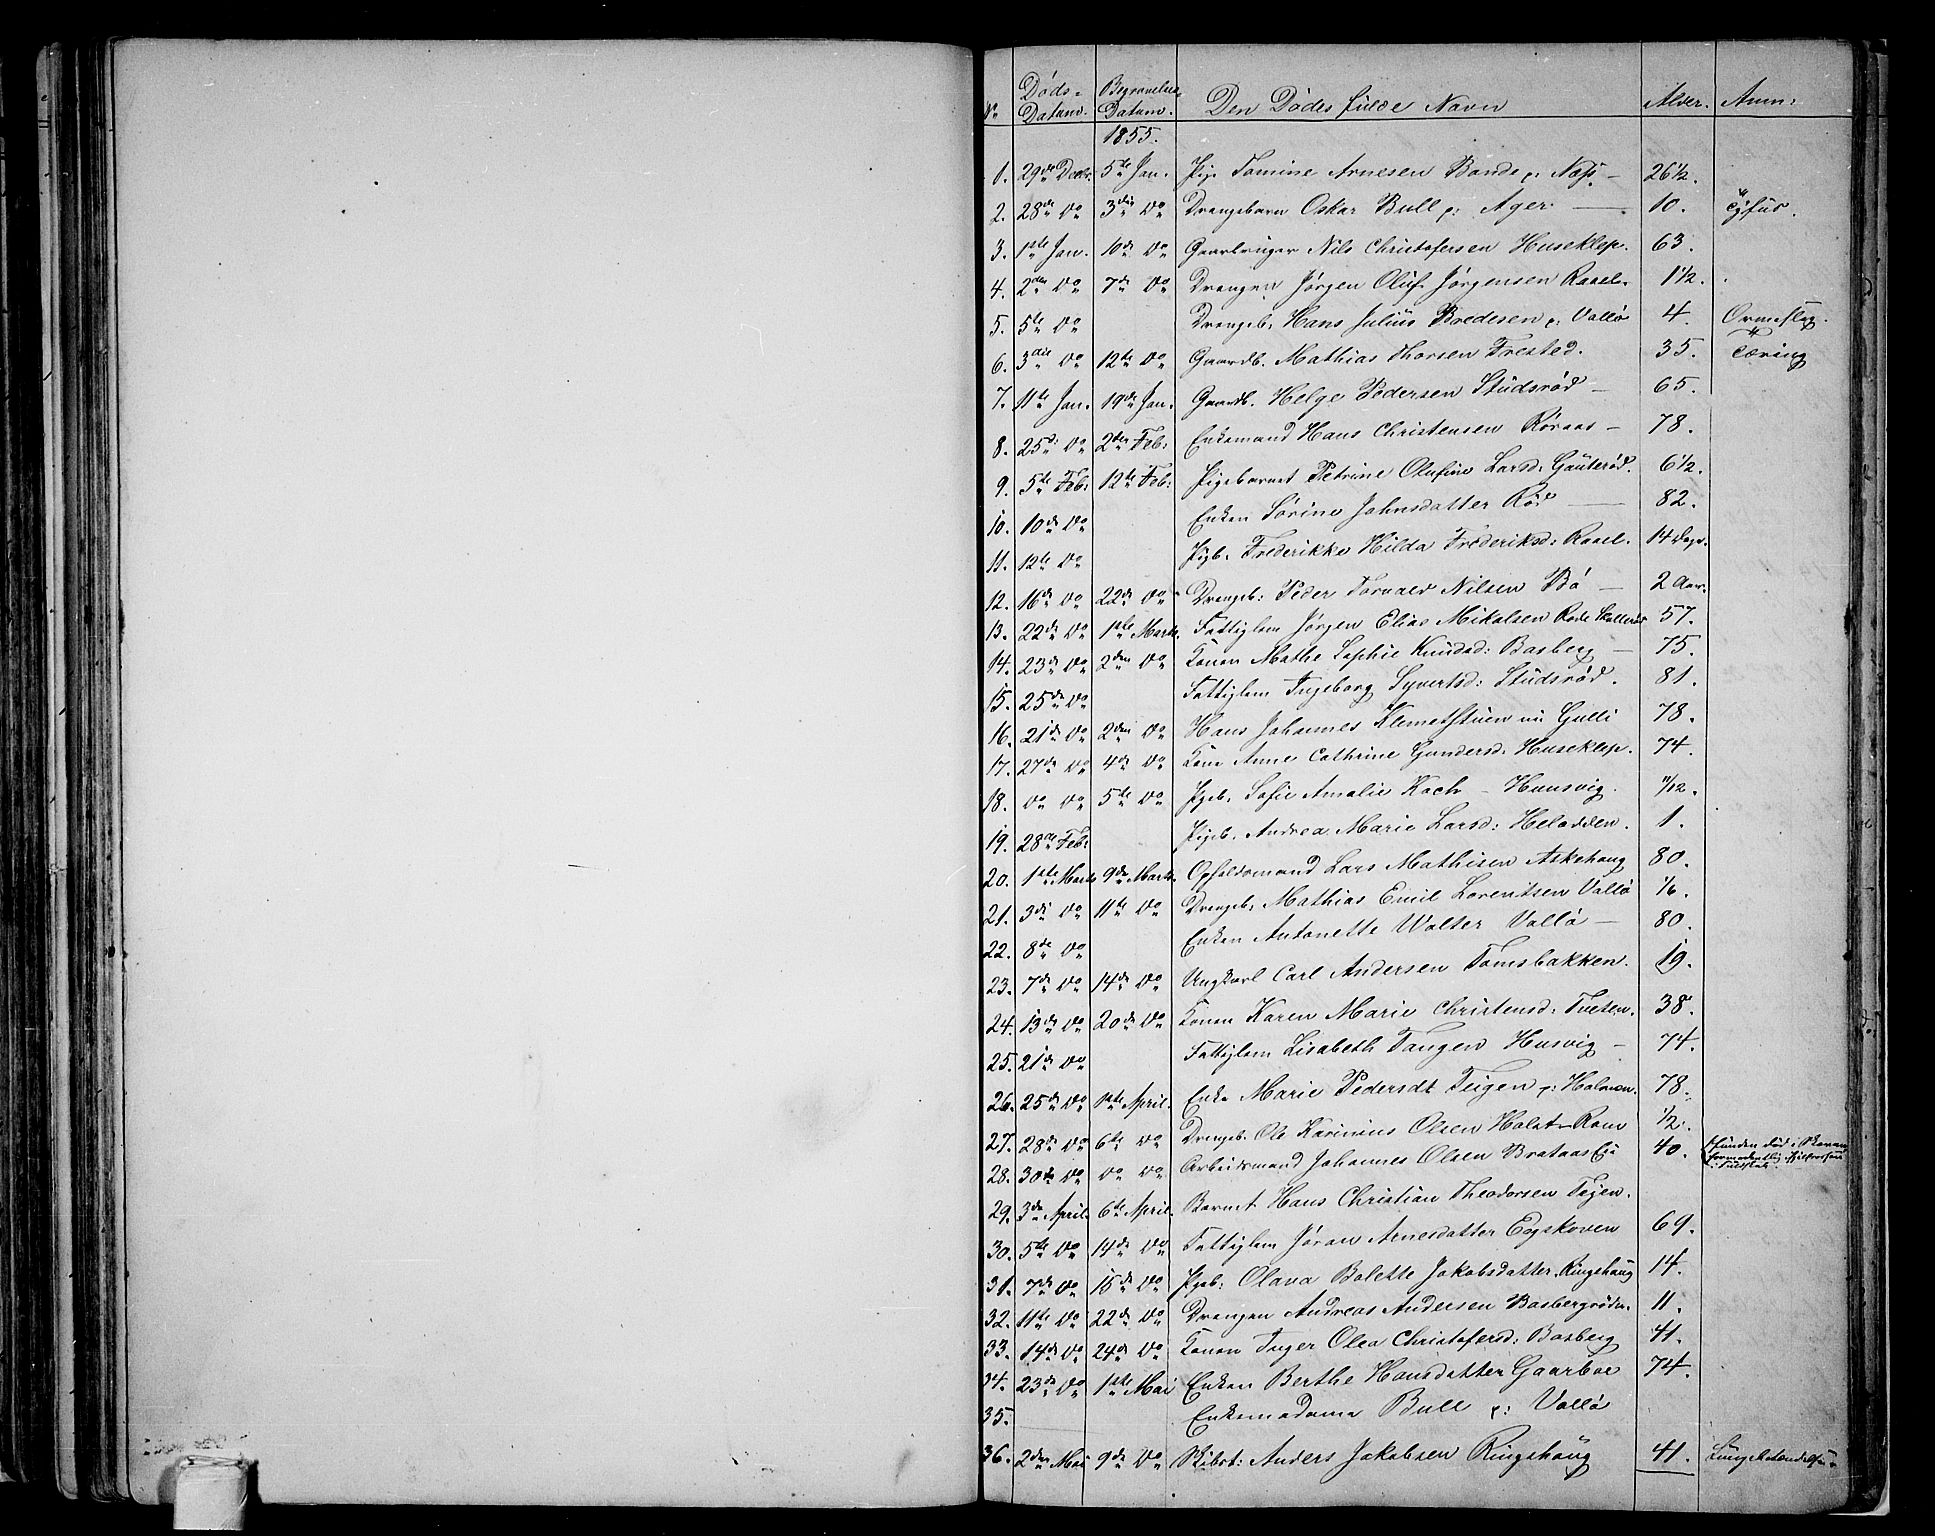 No Døds-Datum. Begravelses Datum. Den Dødes fulde Navn Alder. Anm:
1855.
1. 29de Decbr. 5te Jan. Pige Tomine Arnesen Bonde p: Næss — 26½.
2. 28de Do 3die Do Drengebarn Oskar Bull p: Ager — 10. Tyfus.
3. 1ste Jan. 10de Do Gaarbruger Nils Christofersen Huseklep. 63.
4. 2den Do 7de Do Drengen Jørgen Oluf Jørgensen Ravel. 1½.
5. 5te Do Drengeb. Hans Julius Bredesen p: Vallø 4. Ormeslag.
6. 3die Do 12te Do Gaardb. Mathias Thorsen Frested. 35. Tæring
7. 11te Jan. 19de Jan. Gaardb. Helge Pedersen Studsrød — 65.
8. 25de Do 2den Feb: Enkemand Hans Christensen Røraas — 78.
9. 5te Feb: 12te Feb: Pigebarnet Petrine Olufine Larsd: Gauterød. 6½.
10. 10de Do Enken Sørine Johnsdatter Rød — 82.
11. 12te Do Pigb. Frederikke Hilda Frederiksd: Ravel. 14 Dage.
12. 16de Do 22de Do Drengeb: Peder Torvald Nilsen Bø — 2 Aar.
13. 22de Do 1ste Marts. Fattiglem Jørgen Elias Mikalsen Røde Skallerød 57.
14. 23de Do 2den Do Konen Mathe Sophie Knudsd: Basberg — 75.
15. 25de Do Fattiglem Ingeborg Syvertsd: Studsrød. 81.
16. 21de Do 2den Do Hans Johannes Klemetstuen nu Gulli 78.
17. 27de Do 4de Do Kone Anne Cathrine Gundersd: Huseklep. 74.
18. Do Do 5te Do Pigeb. Sofie Amalie Koch — Huusvig. 11/12.
19. 28de Feb: Pigeb. Andrea Marie Larsd: Heladden. 1.
20. 1ste Marts 9de Marts. Opholdsmand Lars Mathisen Askehaug 80.
21. 3die Do 11te Do Drengeb. Mathias Emil Lorentsen Vallø 1/6.
22. 8de Do Enken Antonette Walter Vallø — 80.
23. 7de Do 14de Do Ungkarl Carl Andersen Tomsbakken. 19.
24. 13de Do 20de Do Konen Karen Marie Christensd: Tveten. 38.
25. 21de Do Fattiglem Lisabeth Tangen Husvig — 74.
26. 25de Do 1ste April. Enke Marie Pedersdt Teigen p: Holmen. 78.
27. 28de Do 6te Do Drengeb. Ole Karinius Olsen Holst-Rom ½.
28. 30te Do Do Do Arbeidsmand Johannes Olsen Brataas Eje 40. Funden død i Skoven formodentlig ihjelfrossen i Fuldskab
29. 3die April. 6te April. Barnet Hans Christian Theodorsen Tejen.
30. 5te Do 14de Do Fattiglem Jøran Arnesdatter Eegskoven 69.
31. 7de Do 15de Do Pigeb: Olava Bolette Jakobsdatter Ringshaug 14.
32. 11te Do 22de Do Drengen Andreas Andersen Basbergrøden. 11.
33. 14de Do 24de Do Konen Inger Olea Christofersd: Basberg 41.
34. 23de Do 1ste Mai Enken Berthe Hansdatter Gaarboe 74.
35. Enkemadame Bull p: Vallø
36. 2den Mai 9de Do Skibst: Anders Jakobsen Ringshaug 41. Lungebetændelse